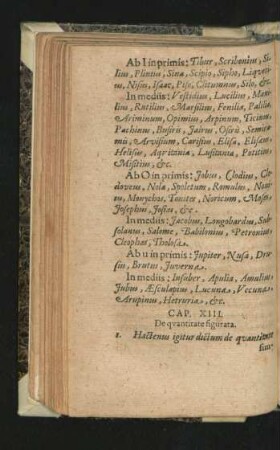 Ab I in primis: Tibur, Scribonius, Si-
lius, Plinius, Sina, Scipio, Sipho, Liquen-
tius, Nisus, Isaac, Piso, Clitumnus, Silo, &c.
In mediis: Vestidius, Lucilius, Mani-
lius, Rutilius, Marsilius, Femilia, Palilia,
Ariminum, Opimius, Arpinum, Ticinus,
Pachinus, Busiris, Jairus, Osiris, Semira-
mis, Arvisium, Carisius, Elisa, Elisaeus,
Helisus, Aqvitania, Lusitania,
&c.
Ab O in primis: Jobus, Clodius, Clo-
doveus, Nola, Spoletum, Romulus,
Monychus, Tonites, Noricum,
Josephus, Josias, &c.
In mediis: Jacobus, Longobardus, Sub-
solanus, Salome, Babilonius, Petronius,
Cleophas, Tholosa.
Ab u in primis: Jupiter, Nusa, Dru-
sus, Brutus, Juverna.
In mediis: Insuber, Apulia, Amulius,
Jubus, Æsculapius, Lucuna, Vecuna,
Arupinus, Hetruria, &c.
CAP. XIII.
De qvantitate figurata.
1. Hactenus igitur dictum de qvantitate